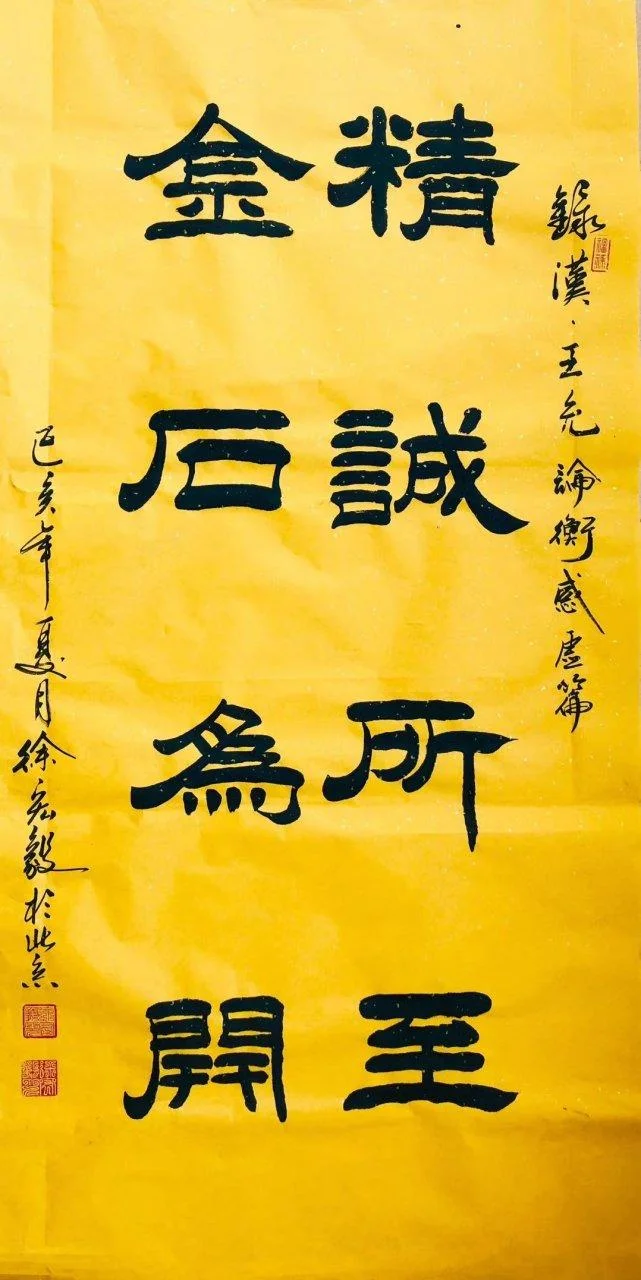 錄漢、王充論衡感虛篇
精誠所至
金石為開
己亥年夏月徐宏毅於北京